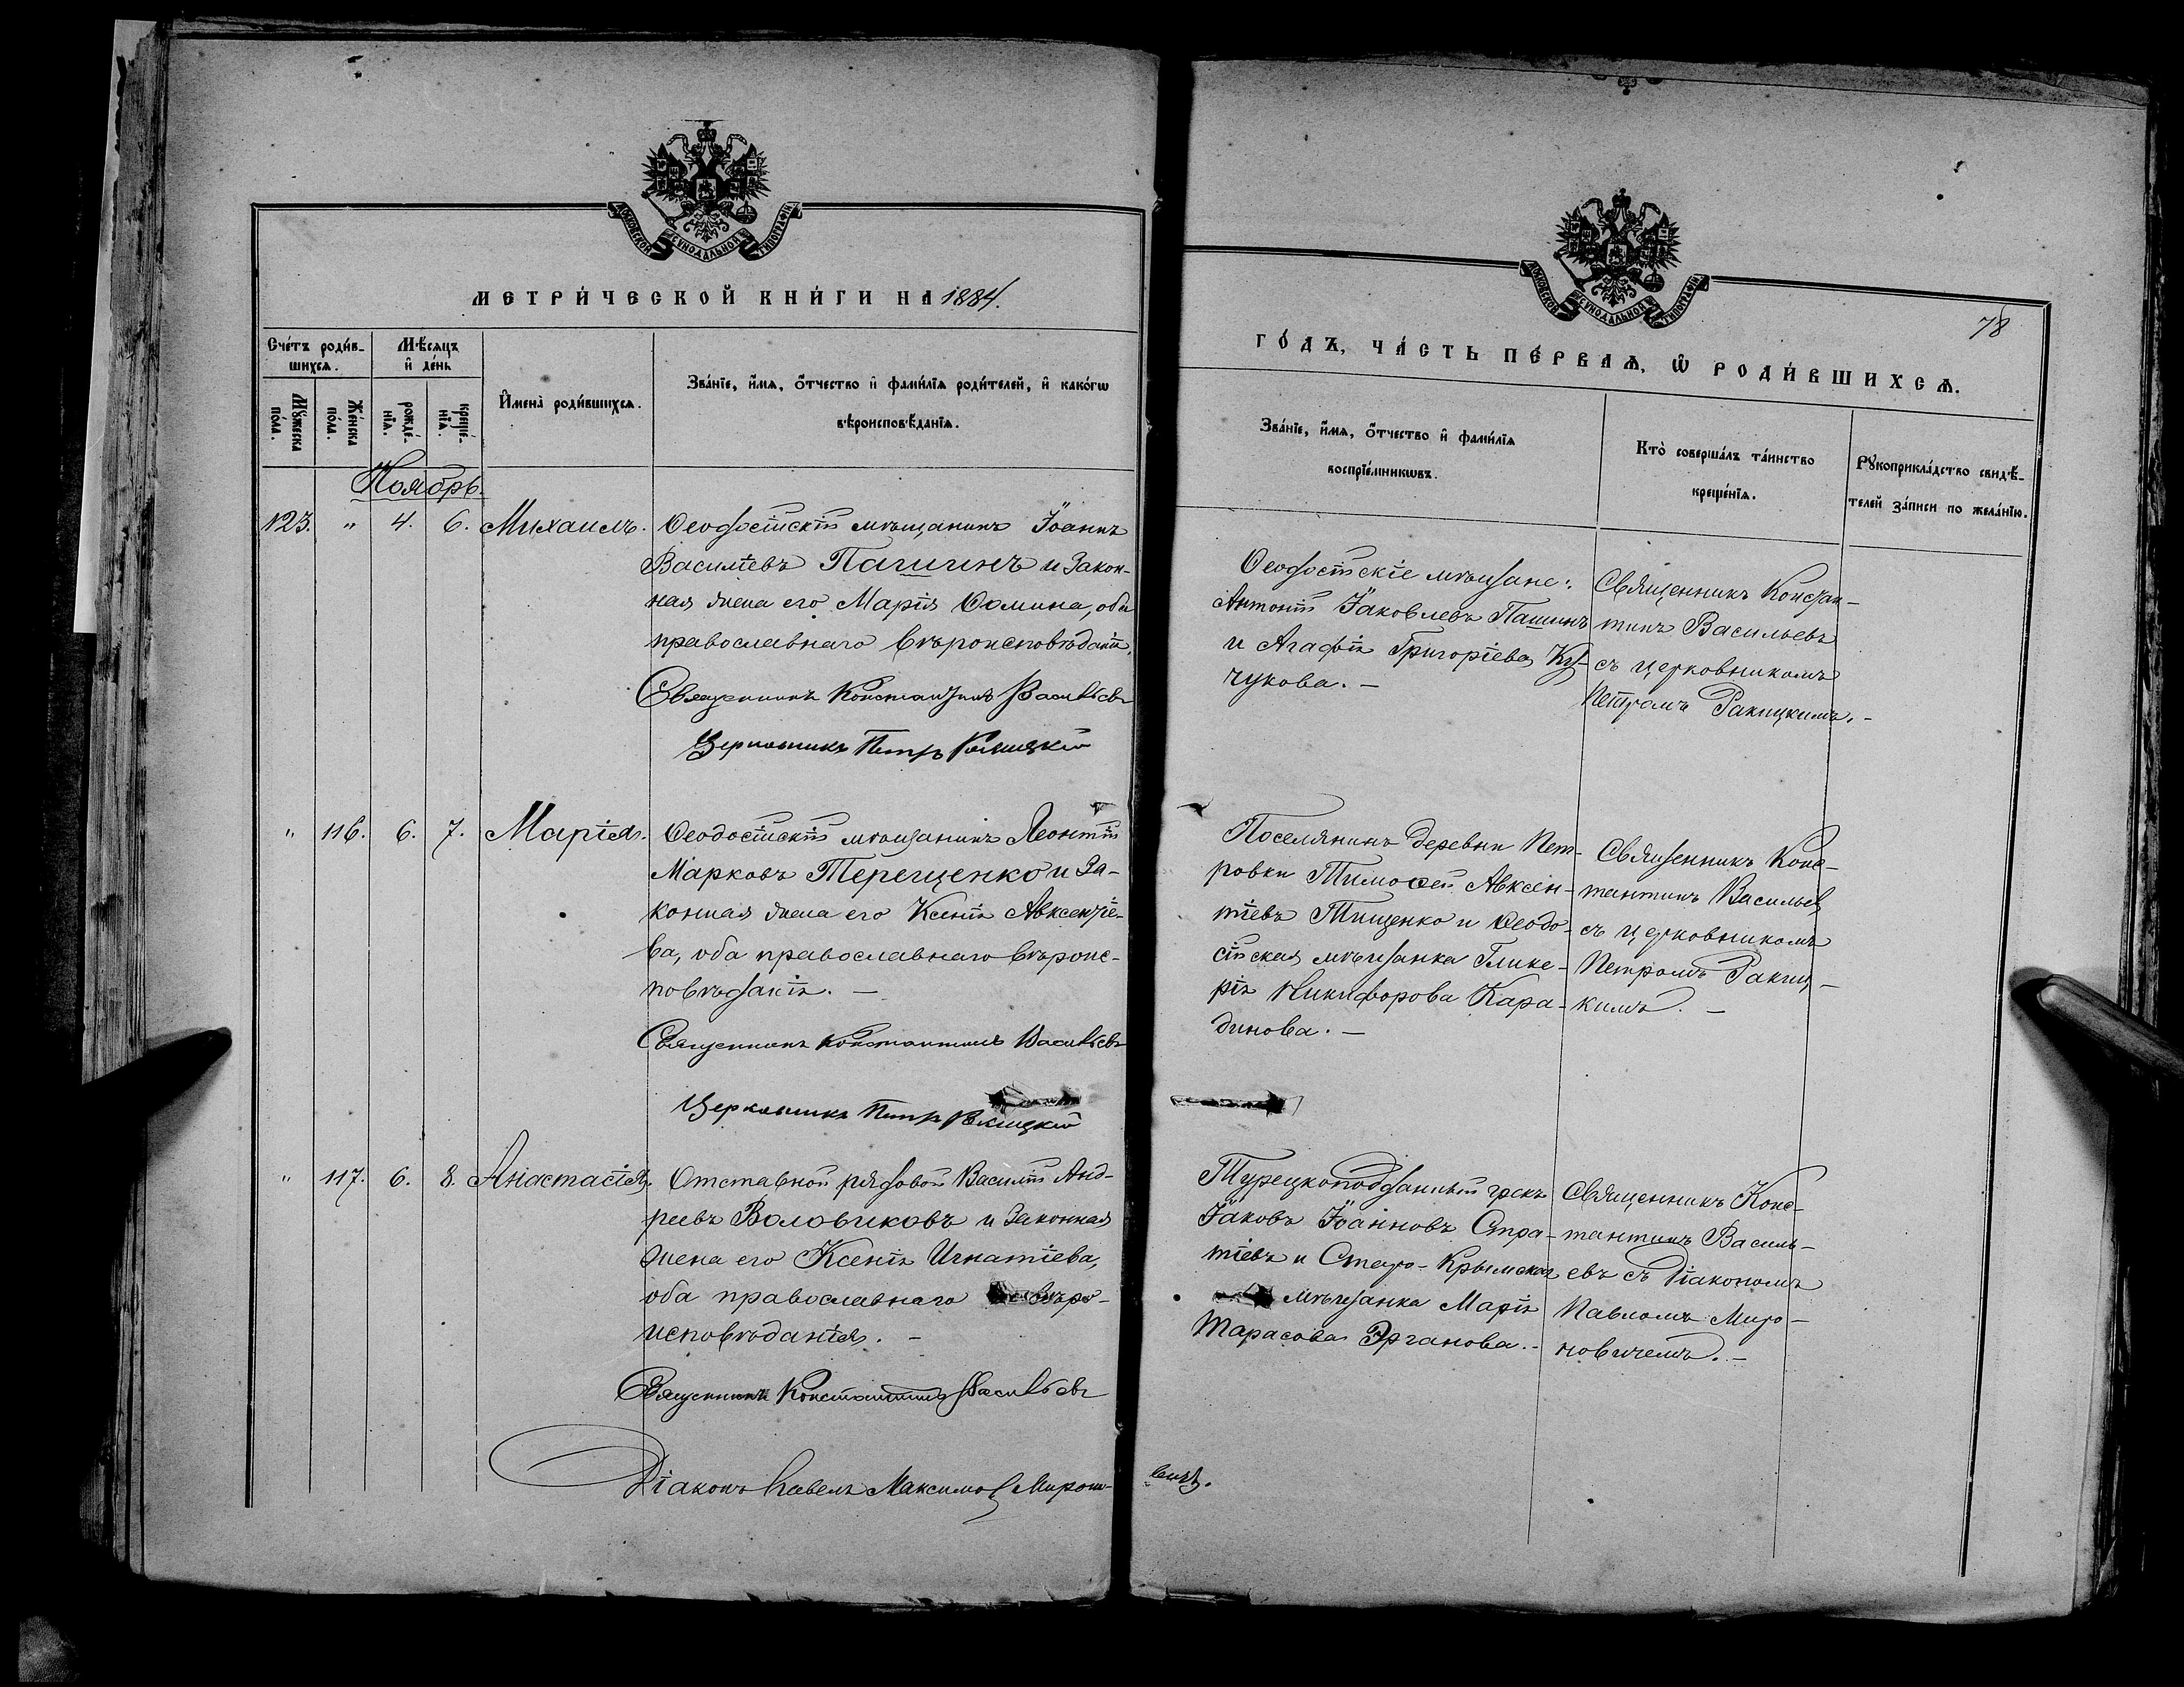 МОСКОВСКОЙ СѴНОДАЛЬНОЙ ТИПОГРАФІИ
МЕТРИ́ЧЕСКОЙ КНИ́ГИ НА 1884.
Сче́тъ роди́в-
шихсѧ.
Мѣ́сѧцъ
и҆ де́нь
Мꙋ́жеска
по́ла.
Же́нска
по́ла.
рожде́-
нїѧ.
креще́-
нїѧ.
И҆мена̀ роди́вшихсѧ.
Зва́нїе, и҆́мѧ, ѻ҆́тчество и҆ фамі́лїѧ роди́телей, и҆ како́гѡ
вѣроисповѣ́данїѧ.
Ноябрь.
123. " 4. 6. Михаилъ. Ѳеодосійскій мѣщанинъ Іоаннъ
Василіевъ Пашинъ и закон-
ная жена его Марія Ѳомина, оба
православнаго вѣроисповѣданія.
Священникъ Константинъ Васильевъ
Церковникъ Петръ Ракицкій
" 116. 6. 7. Марія. Ѳеодосійскій мѣщанинъ Леонтій
Марковъ Терещенко и за-
конная жена его Ксенія Авксентіе-
ва, оба православнаго вѣроис-
повѣданія. —
Священникъ Константинъ Васильевъ
Церковникъ Петръ Ракицкій
" 117. 6. 8. Анастасія. Отставной рядовой Василій Анд-
реевъ Воловиковъ и законная
жена его Ксенія Игнатіева,
оба православнаго вѣро-
исповѣданія. —
Священникъ Константинъ Васильевъ
Діаконъ Павелъ Максимовъ Мироно-
вичъ.
МОСКОВСКОЙ СѴНОДАЛЬНОЙ ТИПОГРАФІИ
78
ГО́ДЪ, ЧА́СТЬ ПЕ́РВАѦ, Ѡ҆ РОДИ́ВШИХСѦ.
Зва́нїе, и҆́мѧ, ѻ҆́тчество и҆ фамі́лїѧ
воспрїе́мникѡвъ.
Кто̀ соверша́лъ та́инство
креще́нїѧ.
Рꙋкоприкла́дство свидѣ́-
телей за́писи по жела́нїю.
Ѳеодосійскіе мѣщане:
Антоній Іаковлевъ Пашинъ
и Агафія Григоріева Ку-
чукова. —
Священникъ Констан-
тинъ Васильевъ
съ церковникомъ
Петромъ Ракицкимъ. —
Поселянинъ деревни Пет-
ровки Тимоѳей Авксен-
тіевъ Тищенко и Ѳеодо-
сійская мѣщанка Глике-
рія Никифорова Кара-
динова. —
Священникъ Конс-
тантинъ Васильевъ
съ церковникомъ
Петромъ Ракиц-
кимъ. —
Турецкоподданный грекъ
Іаковъ Іоанновъ Стра-
тіевъ и Старо-Крымская
мѣщанка Марія
Тарасова Эрганова. -
Священникъ Конс-
тантинъ Василь-
евъ съ діакономъ
Павломъ Миро-
новичемъ. —